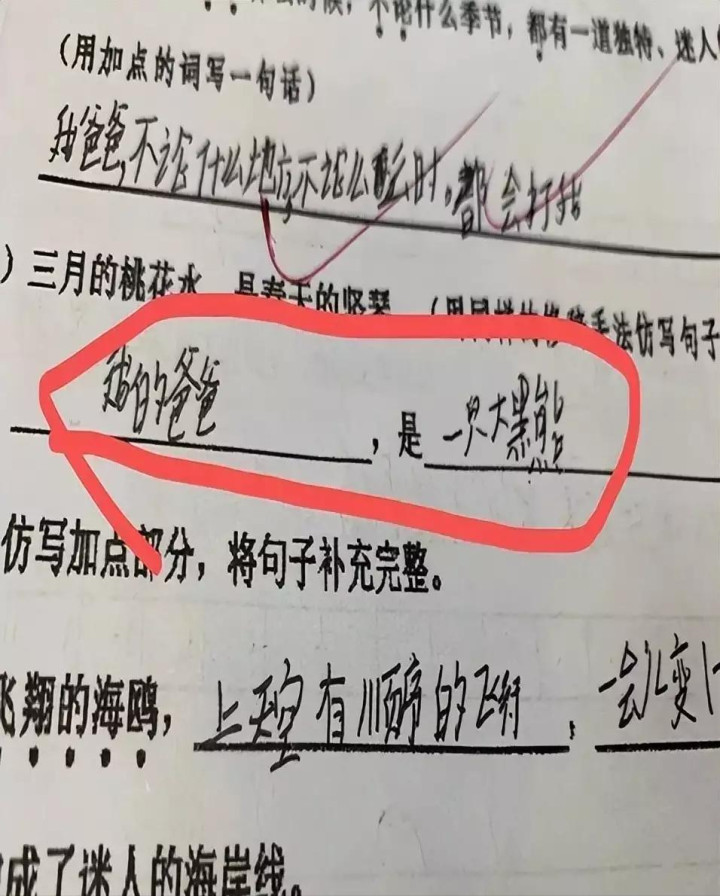 不论什么季节，都有一道独特、迷人
(用加点的词写一句话)
我爸爸,不论什么地方,不论么时,都会打我
)三月的桃花水，是春天的竖琴。(用同样的修辞手法仿写句子
我的爸爸，是一只大黑熊
仿写加点部分，将句子补充完整。
飞翔的海鸥，上天空有顺序的飞行，一会儿变
成了迷人的海岸线。